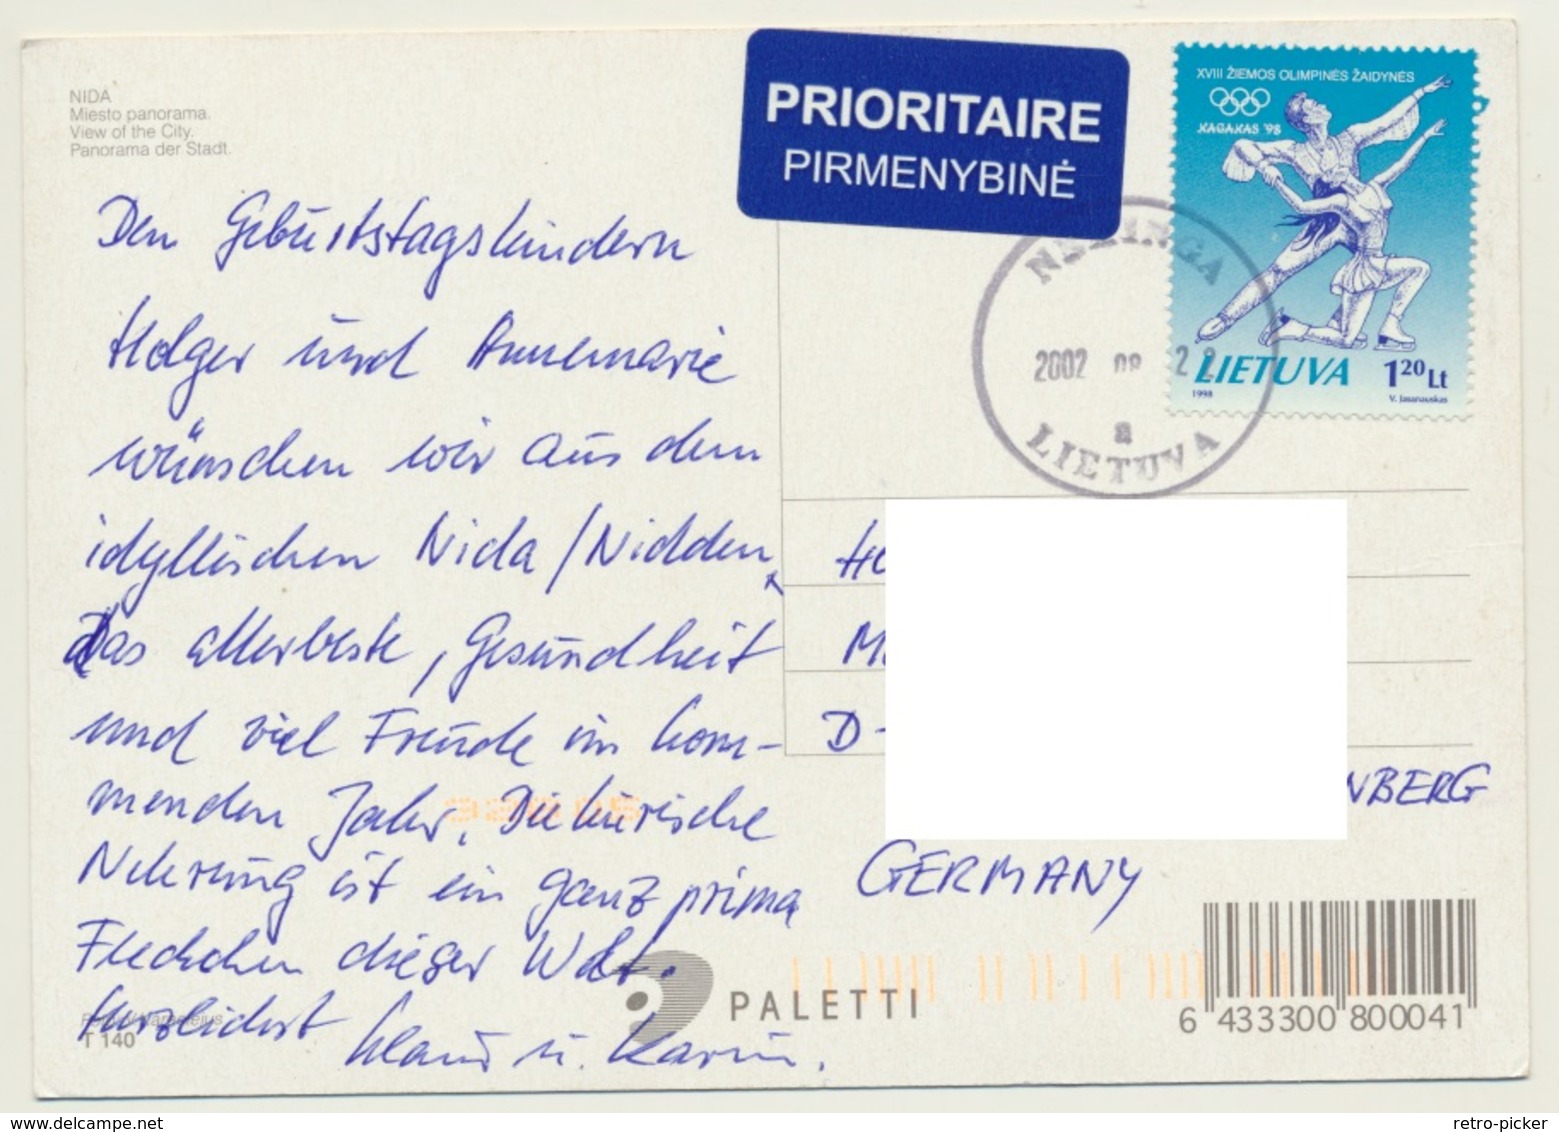 NIDA
Miesto panorama.
View of the City.
Panorama der Stadt.
Den Geburtstagskindern
Holger und Annemarie
wünschen wir aus dem
idyllischen Nida/Nidden
das allerbeste, Gesundheit
und viel Freude im kom-
menden Jahr. Die kurische
Nehrung ist ein ganz prima
Fleckchen dieser Welt.
Herzlichst
Klaus u. Karin.
T 140
PRIORITAIRE
PIRMENYBINĖ
XVIII ŽIEMOS OLIMPINĖS ŽAIDYNĖS
NAGANAS '98
LIETUVA 120 Lt
1998 V. Jasanauskas
2002 08 22
a
LIETUVA
D-
NBERG
GERMANY
PALETTI
6 433300 800041
delcampe.net
retro-picker